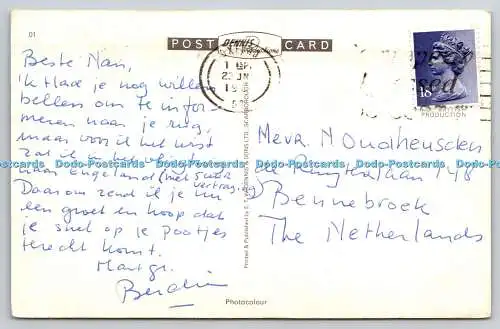 01
POST CARD
DENNIS
Productions
1 15 PM
18
PRODUCTION
Beste Nan,
'k Had je nog willen
bellen om te infor-
meren naar je rug,
maar voor ik het wist
zat ik in het vliegtuig
naar Engeland (met 5 uur
vertraging)
Daarom zend ik je nu
een groet en hoop dat
je snel op je pootjes
terecht komt.
Hart. gr.
Berdine
Mevr. N Oudheusden
148
Bennebroek
The Netherlands
Printed & Published by E.T.W. DENNIS & SONS LTD., SCARBOROUGH
Photocolour
Dodo-Postcards Dodo-Postcards Dodo-Postcards Dodo-Postcards Dodo-Postcards